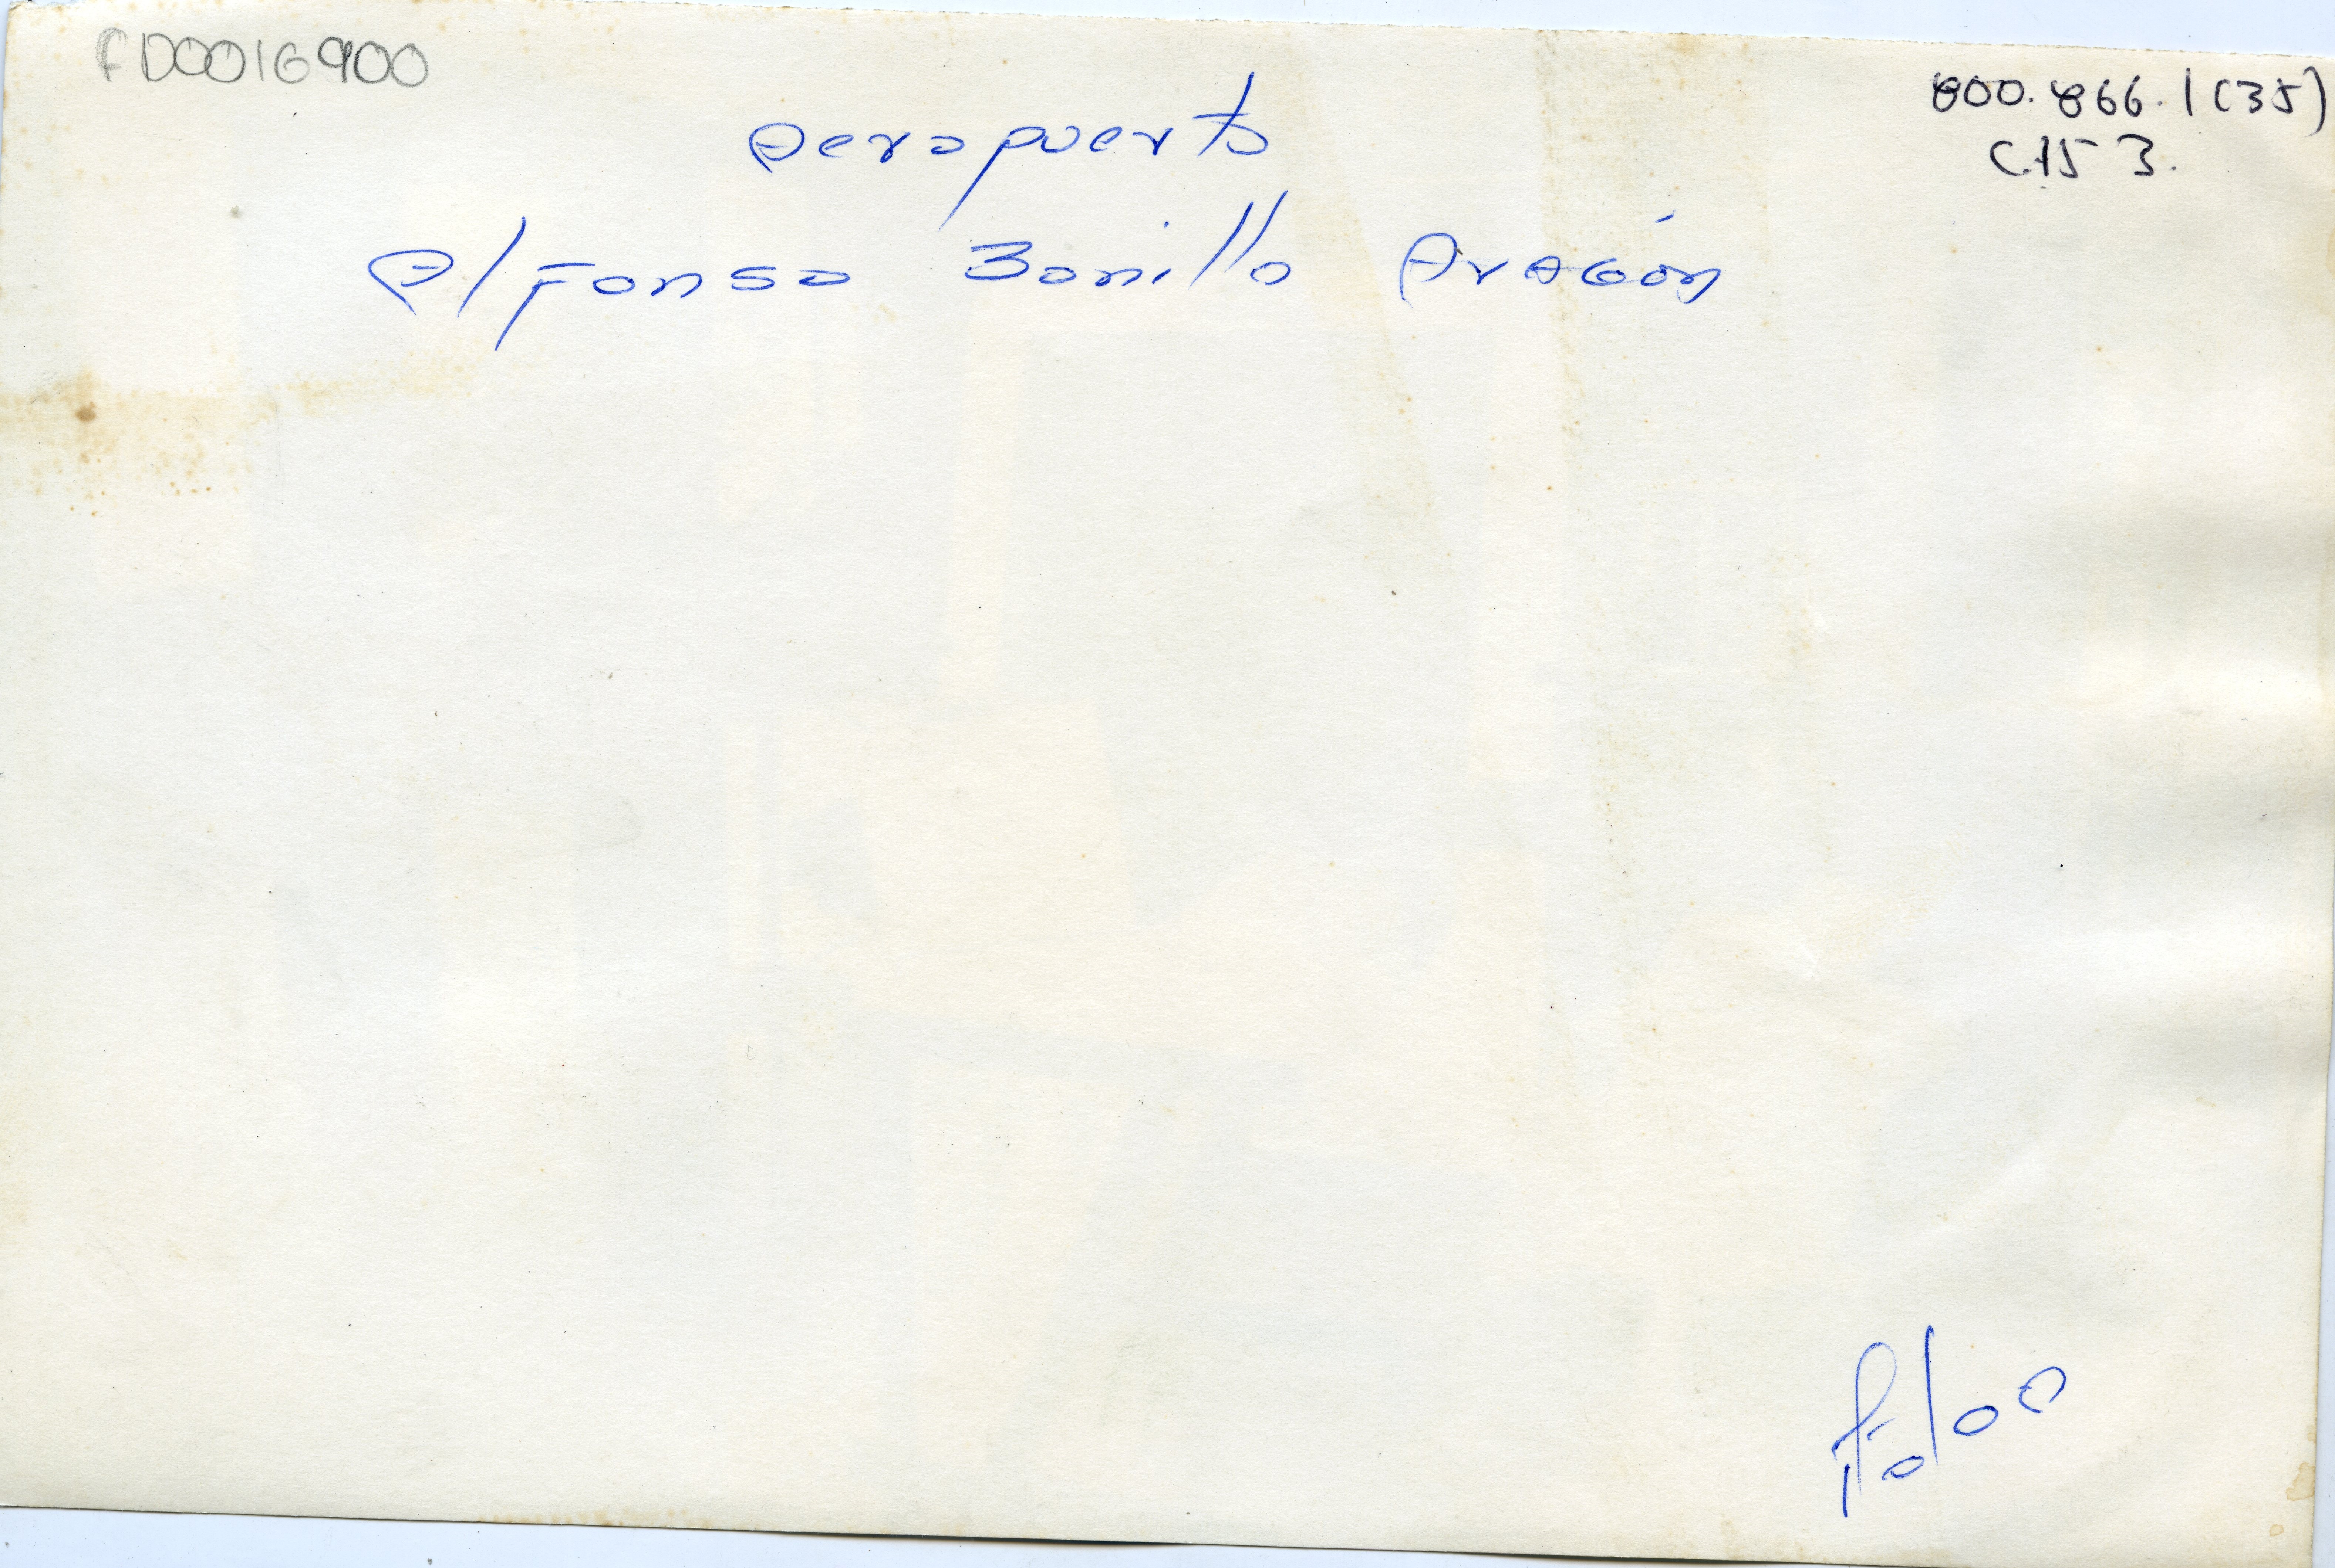 FD0016900
800.866.1(35)
C.15 3.
Aeropuerto
Alfonso Bonilla Aragón